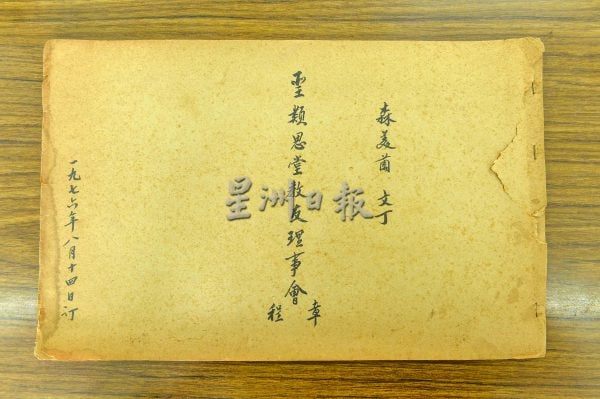 森美蘭 文丁
聖類思堂教友理事會
章程
一九七六年八月十四日订
星洲日報